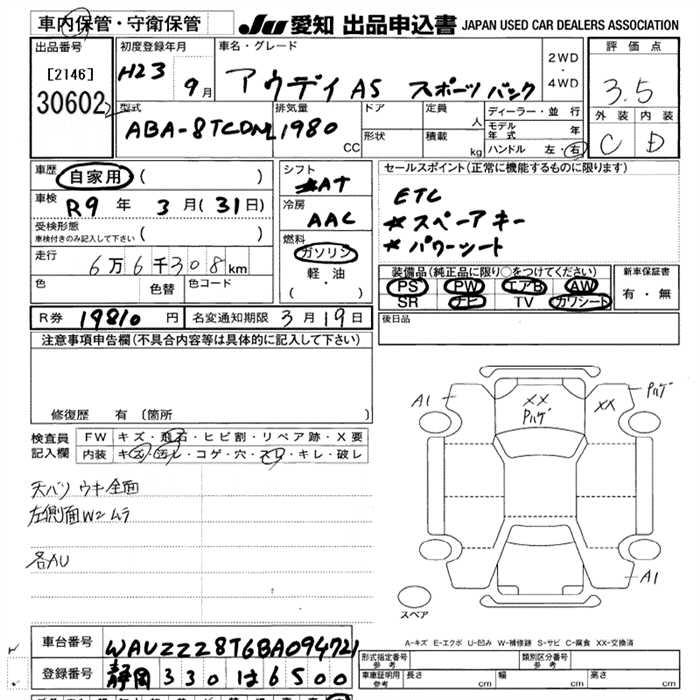 車内保管・守衛保管 JU 愛知 出品申込書 JAPAN USED CAR DEALERS ASSOCIATION
出品番号 [2146] 30602
初度登録年月 H23 9月
車名・グレード アウディ A5 スポーツバック
2WD・4WD
評価点 3.5
外装 C 内装 D
型式 ABA-8TCDNL
排気量 1980 CC
ドア 形状
定員 人
積載 kg
ディーラー・並行
モデル年式 年
ハンドル 左・右
車歴 自家用 ( )
車検 R9年 3月(31日)
受検形態
車検付きのみ記入して下さい ( )
走行 6万6千308km
色 色替 色コード
シフト AT
冷房 AAC
燃料 ガソリン 軽・油 ( ・ )
セールスポイント(正常に機能するものに限ります)
ETC
*スペアキー
*パワーシート
装備品(純正品に限り○をつけてください)
PS PW エアB AW
SR ナビ TV カワシート
新車保証書 有・無
後日品
R券 19810円 名変通知期限 3月19日
注意事項申告欄(不具合内容等は具体的に記入して下さい)
修復歴 有〔箇所 〕
検査員記入欄
FW キズ・飛石・ヒビ割・リペア跡・X要
内装 キズ・汚レ・コゲ・穴・スレ・キレ・破レ
天バリ ウキ全面
左側面W2 ムラ
各AU
A1 XX Pハゲ XX Pハゲ
A1
スペア
A-キズ E-エクボ U-凹み W-補修跡 S-サビ C-腐食 XX-交換済
車台番号 WAUZZZ8T6BA094721
登録番号 静岡 330 は 6500
形式指定番号 参考 類別区分番号 参考
車庫証明用 参考 長さ cm 幅 cm 高さ cm